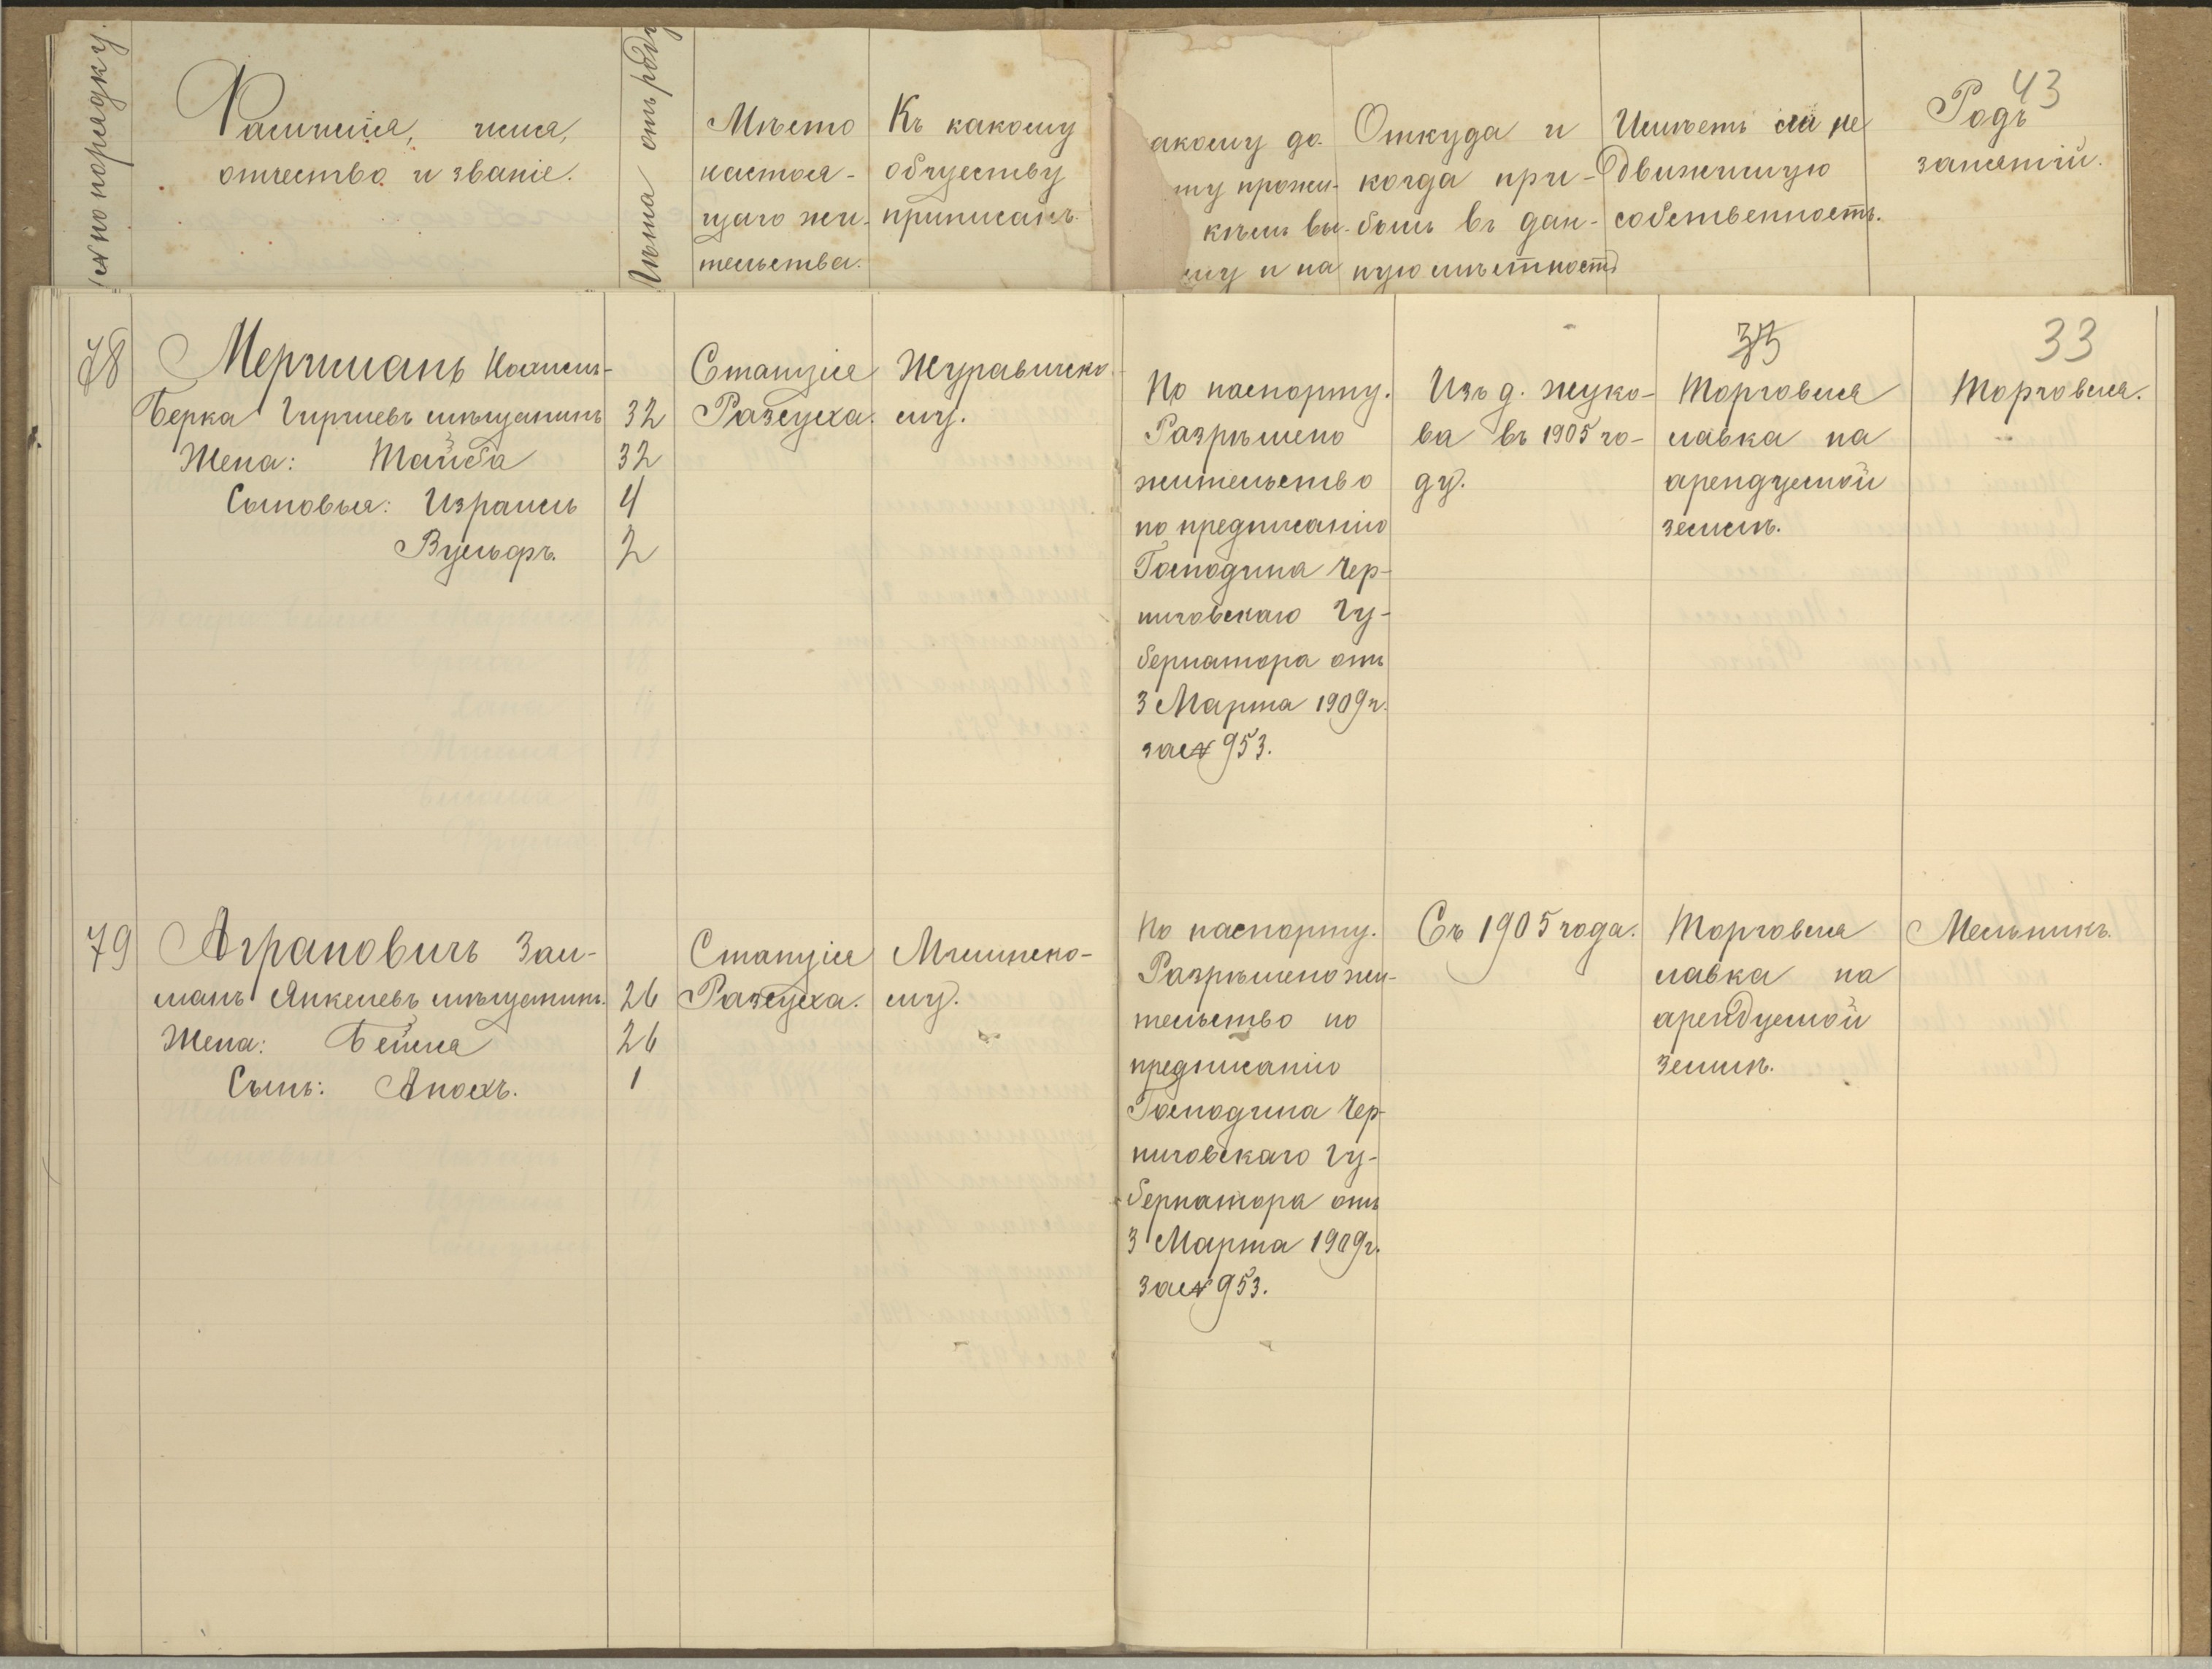 № по порядку
Фамилія, имя,
отчество и званіе.
Лѣта отъ роду
Мѣсто
настоя-
щаго жи-
тельства.
Къ какому
обществу
приписанъ.
акому до-
ту прожи-
кѣмъ вы-
му и на
Откуда и
когда при-
былъ въ дан-
ную мѣстность
Имѣетъ ли не
движимую
собственность.
Родъ
занятій.
43
78
Мерчманъ
Берка Гиршевъ мѣщанинъ 32
Жена: Тайба 32
Сыновья: Израиль 4
Вульфъ. 2
Станція
Разсуха.
Журавичско-
му.
По паспорту.
Разрѣшено
жительство
по предписанію
Господина Чер-
ниговскаго Гу-
бернатора отъ
3 Марта 1909 г.
за № 953.
Изъ д. Жуко-
ва въ 1905 го-
ду.
Торговля
лавка на
арендуемой
землѣ.
33
Торговля.
79
Аграновичъ Зал-
манъ Янкелевъ мѣщанинъ. 26
Жена: Бейля 26
Сынъ: Анохъ. 1
Станція
Разсуха.
Мглинско-
му.
По паспорту.
Разрѣшено жи-
тельство по
предписанію
Господина Чер-
ниговскаго Гу-
бернатора отъ
3 Марта 1909 г.
за № 953.
Съ 1905 года.
Торговля
лавка на
арендуемой
землѣ.
Мельникъ.